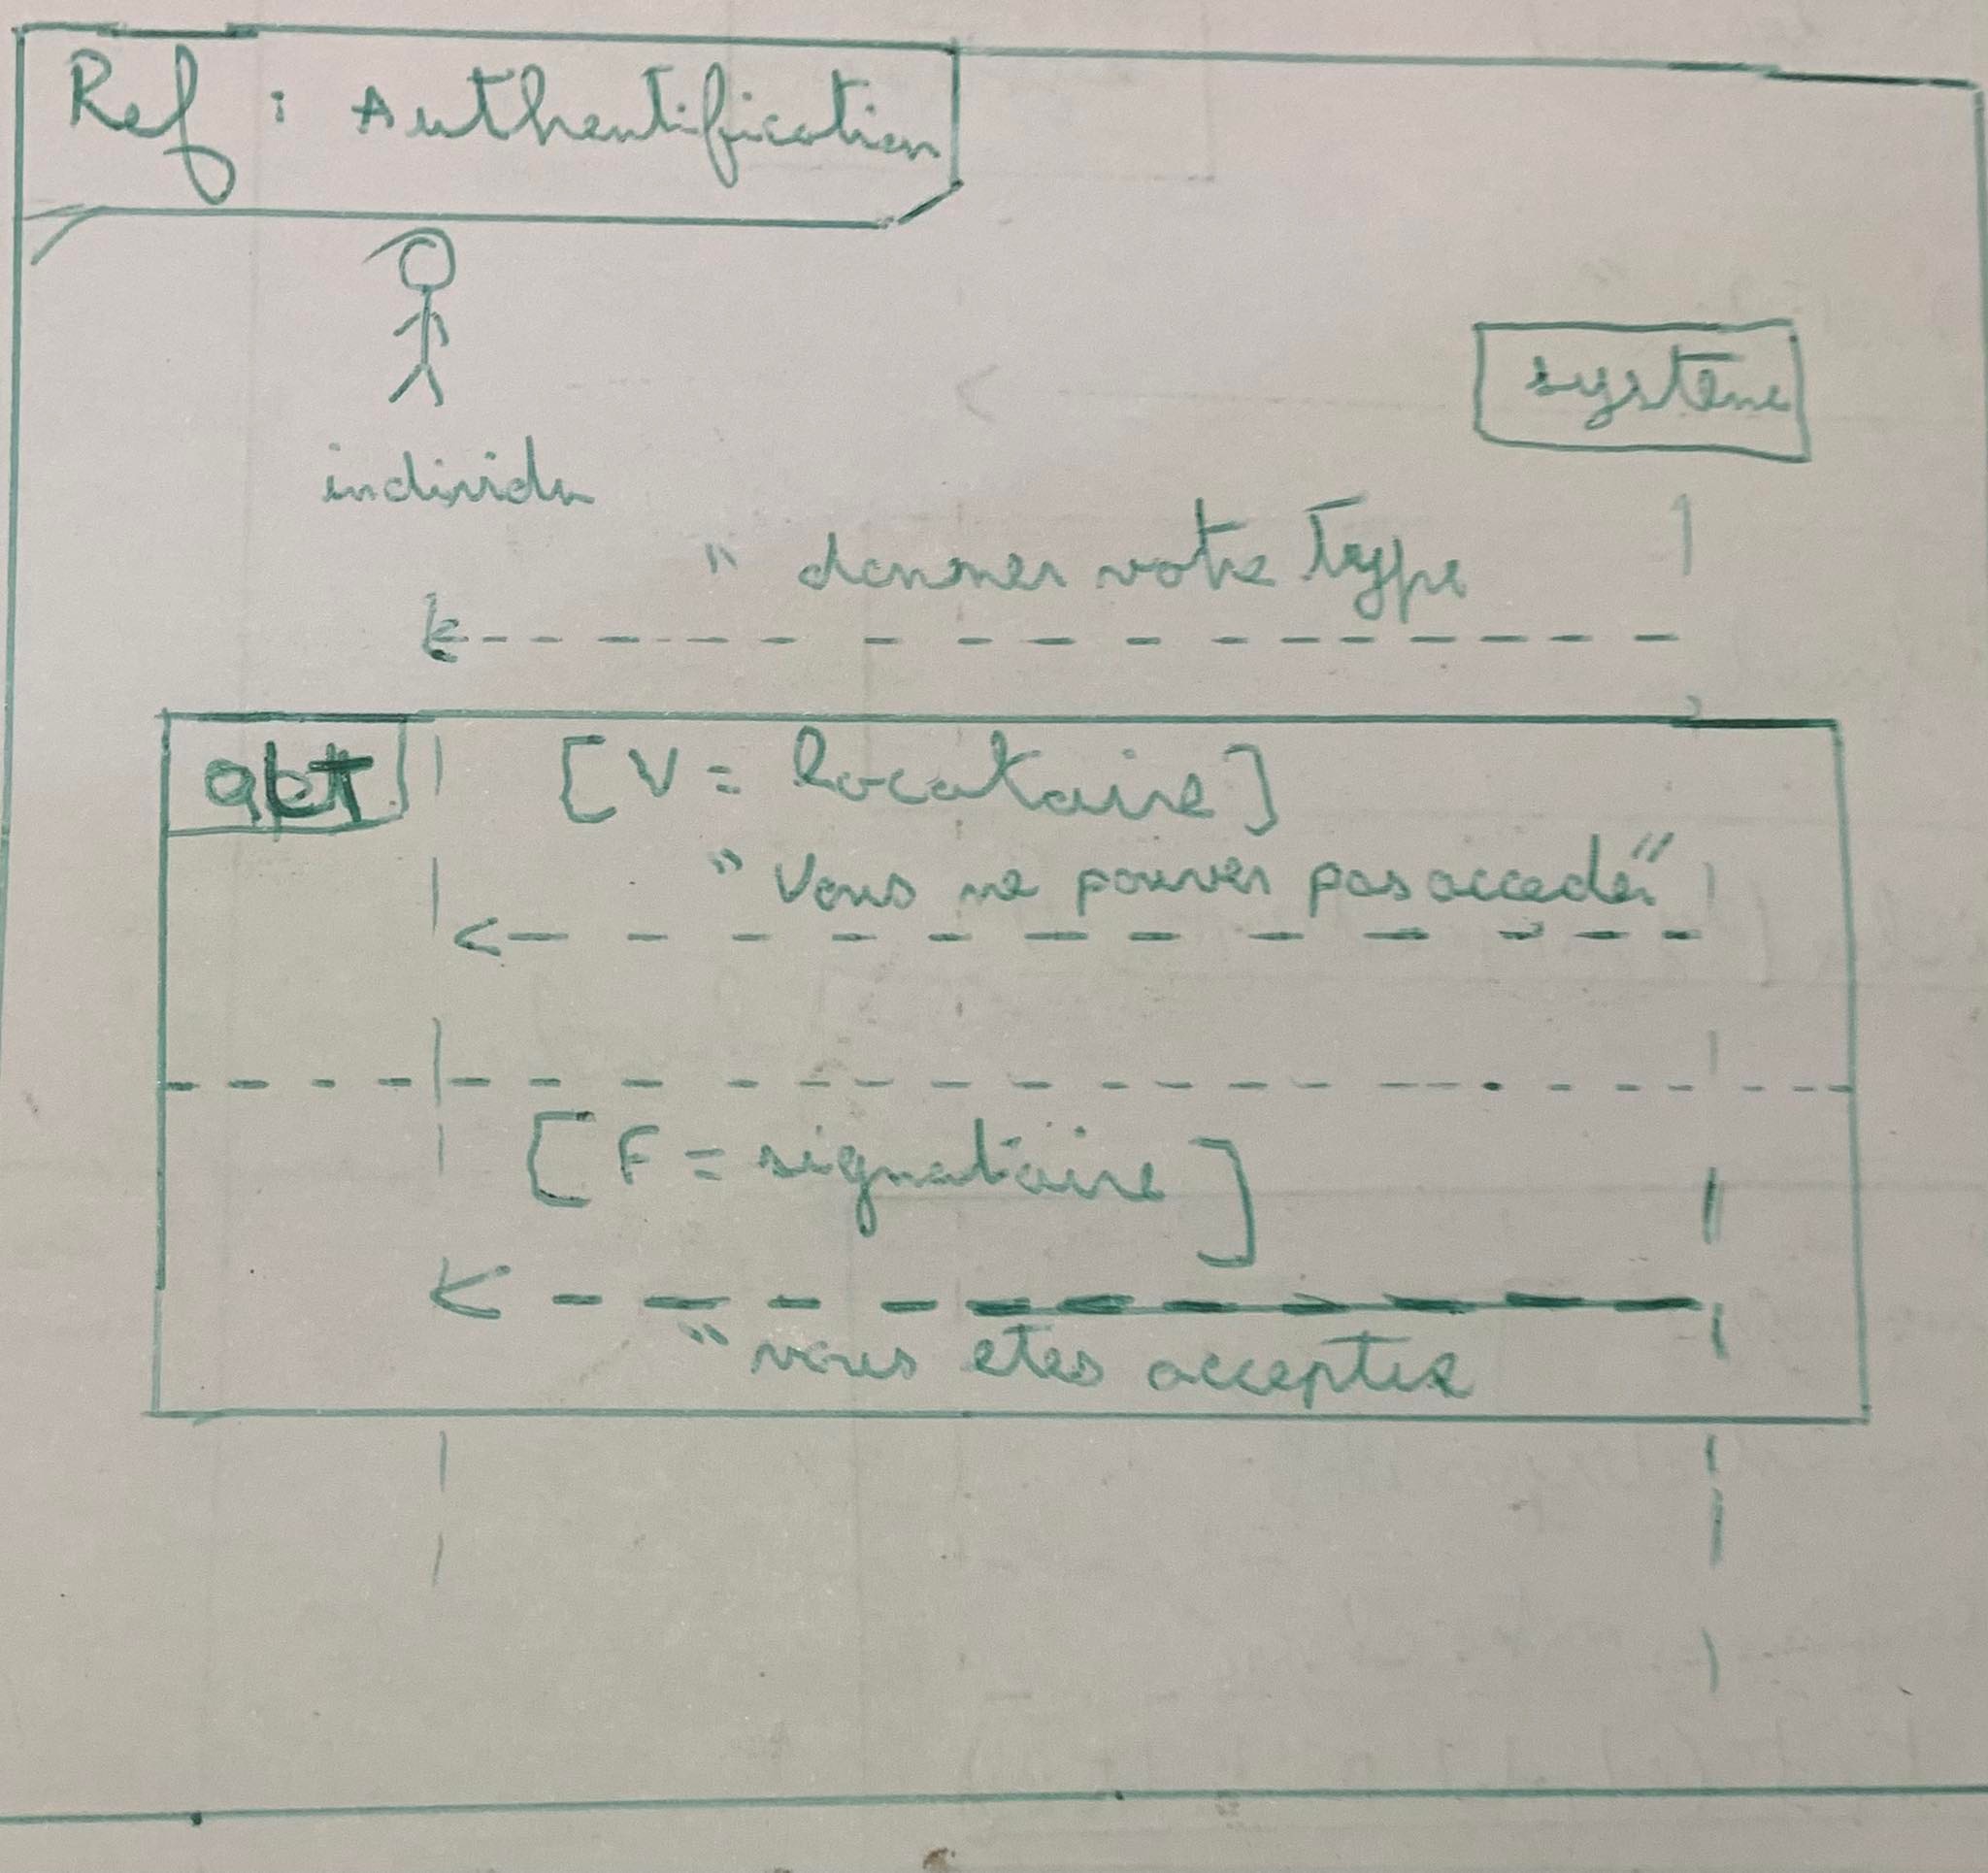 Ref : Authentification
système
individu
" donner votre Type
[ V = locataire ]
" Vous ne pouver pas acceder "
[ F = signataire ]
" vous etes accepter